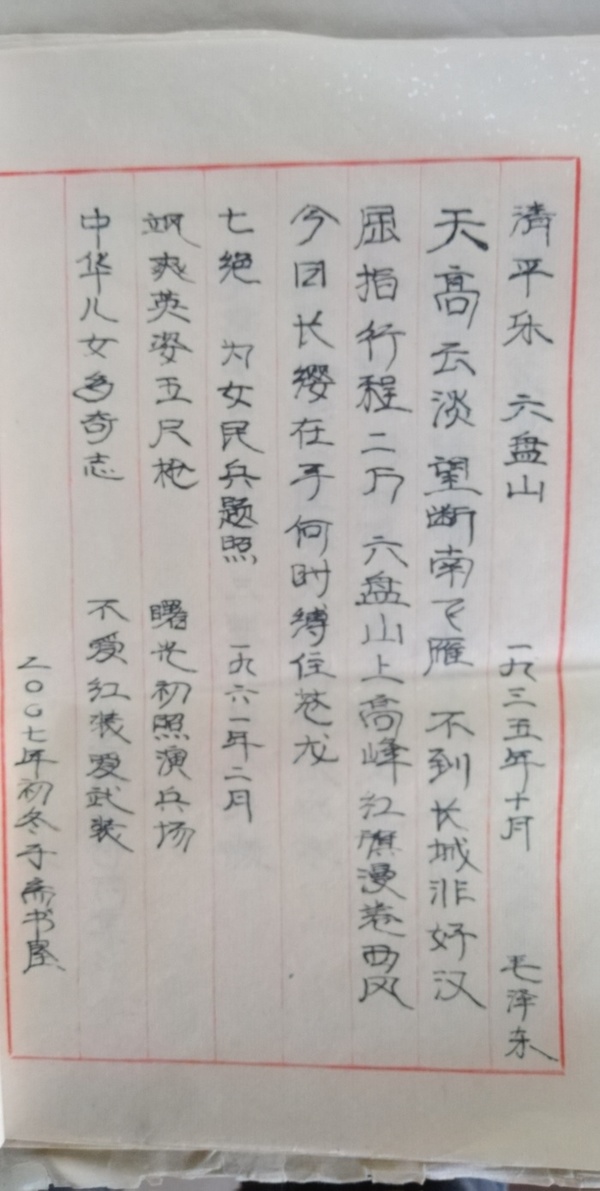 清平乐 六盘山 一九三五年十月 毛泽东
天高云淡 望断南飞雁 不到长城非好汉
屈指行程二万 六盘山上高峰 红旗漫卷西风
今日长缨在手 何时缚住苍龙
七绝 为女民兵题照 一九六一年二月
飒爽英姿五尺枪 曙光初照演兵场
中华儿女多奇志 不爱红装爱武装
二〇〇七年初冬于斋书屋